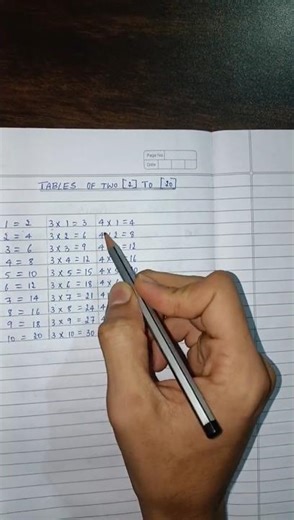 Page No.
Date
TABLES OF TWO [2] TO [20]
1 = 2 3 x 1 = 3 4 x 1 = 4
2 = 4 3 x 2 = 6 4 x 2 = 8
3 = 6 3 x 3 = 9 4 = 12
4 = 8 3 x 4 = 12 4 = 16
5 = 10 3 x 5 = 15 4
6 = 12 3 x 6 = 18 4
7 = 14 3 x 7 = 21 4
8 = 16 3 x 8 = 24 4
9 = 18 3 x 9 = 27
10 = 20 3 x 10 = 30